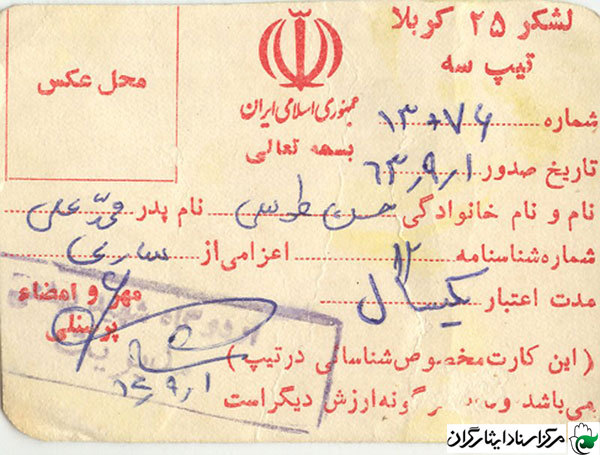 لشکر ۲۵ کربلا
تیپ سه
محل عکس
جمهوری اسلامی ایران
بسمه تعالی
شماره ۱۳۰۷۶
تاریخ صدور ۶۳٫۹٫۱
نام و نام خانوادگی حسن طوسی نام پدر محمد علی
شماره شناسنامه ۱۲ اعزامی از ساری
مدت اعتبار یکسال
مهر و امضاء
پرسنلی
( این کارت مخصوص شناسائی در تیپ )
می باشد و گونه ارزش دیگر است
۶۳٫۹٫۱
مرکز اسناد ایثارگران